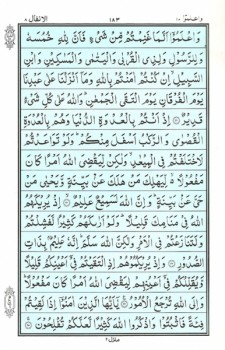 واعلموٓا ١٠ ١٨٣ الانفال ٨
وَاعْلَمُوْٓا اَنَّمَا غَنِمْتُمْ مِّنْ شَىْءٍ فَاَنَّ لِلّٰهِ خُمُسَهٗ
وَلِلرَّسُوْلِ وَلِذِى الْقُرْبٰى وَالْيَتٰمٰى وَالْمَسٰكِيْنِ وَابْنِ
السَّبِيْلِ ۙ اِنْ كُنْتُمْ اٰمَنْتُمْ بِاللّٰهِ وَمَآ اَنْزَلْنَا عَلٰى عَبْدِنَا
يَوْمَ الْفُرْقَانِ يَوْمَ الْتَقَى الْجَمْعٰنِ ؕ وَاللّٰهُ عَلٰى كُلِّ شَىْءٍ
قَدِيْرٌ ۝ اِذْ اَنْتُمْ بِالْعُدْوَةِ الدُّنْيَا وَهُمْ بِالْعُدْوَةِ
الْقُصْوٰى وَالرَّكْبُ اَسْفَلَ مِنْكُمْ ؕ وَلَوْ تَوَاعَدْتُّمْ
لَاخْتَلَفْتُمْ فِى الْمِيْعٰدِ ۙ وَلٰكِنْ لِّيَقْضِىَ اللّٰهُ اَمْرًا كَانَ
مَفْعُوْلًا ۙ لِّيَهْلِكَ مَنْ هَلَكَ عَنْۢ بَيِّنَةٍ وَّيَحْيٰى مَنْ
حَىَّ عَنْۢ بَيِّنَةٍ ؕ وَاِنَّ اللّٰهَ لَسَمِيْعٌ عَلِيْمٌ ۝ اِذْ يُرِيْكَهُمُ
اللّٰهُ فِىْ مَنَامِكَ قَلِيْلًا ؕ وَلَوْ اَرٰىكَهُمْ كَثِيْرًا لَّفَشِلْتُمْ
وَلَتَنَازَعْتُمْ فِى الْاَمْرِ وَلٰكِنَّ اللّٰهَ سَلَّمَ ؕ اِنَّهٗ عَلِيْمٌۢ بِذَاتِ
الصُّدُوْرِ ۝ وَاِذْ يُرِيْكُمُوْهُمْ اِذِ الْتَقَيْتُمْ فِىْٓ اَعْيُنِكُمْ قَلِيْلًا
وَّيُقَلِّلُكُمْ فِىْٓ اَعْيُنِهِمْ لِيَقْضِىَ اللّٰهُ اَمْرًا كَانَ مَفْعُوْلًا ؕ
وَاِلَى اللّٰهِ تُرْجَعُ الْاُمُوْرُ ۝ يٰٓاَيُّهَا الَّذِيْنَ اٰمَنُوْٓا اِذَا لَقِيْتُمْ
فِئَةً فَاثْبُتُوْا وَاذْكُرُوا اللّٰهَ كَثِيْرًا لَّعَلَّكُمْ تُفْلِحُوْنَ ۝
منزل٢